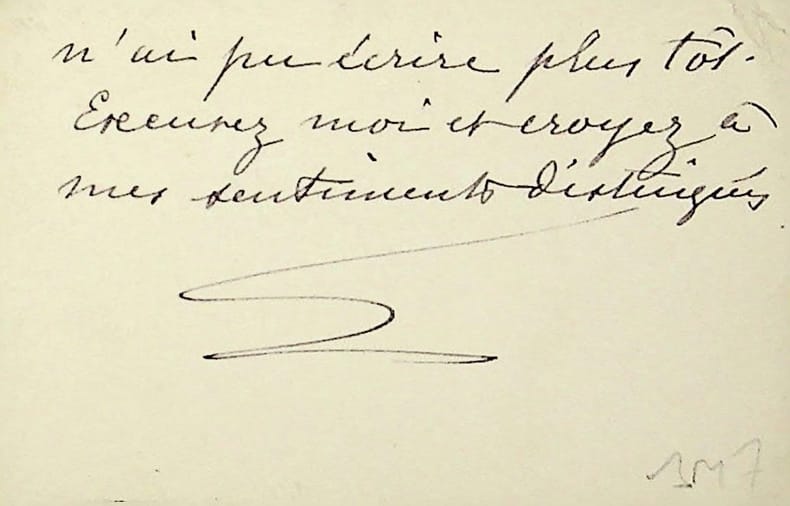 n'ai pu écrire plus tôt.
Excusez moi et croyez à
mes sentiments distingués